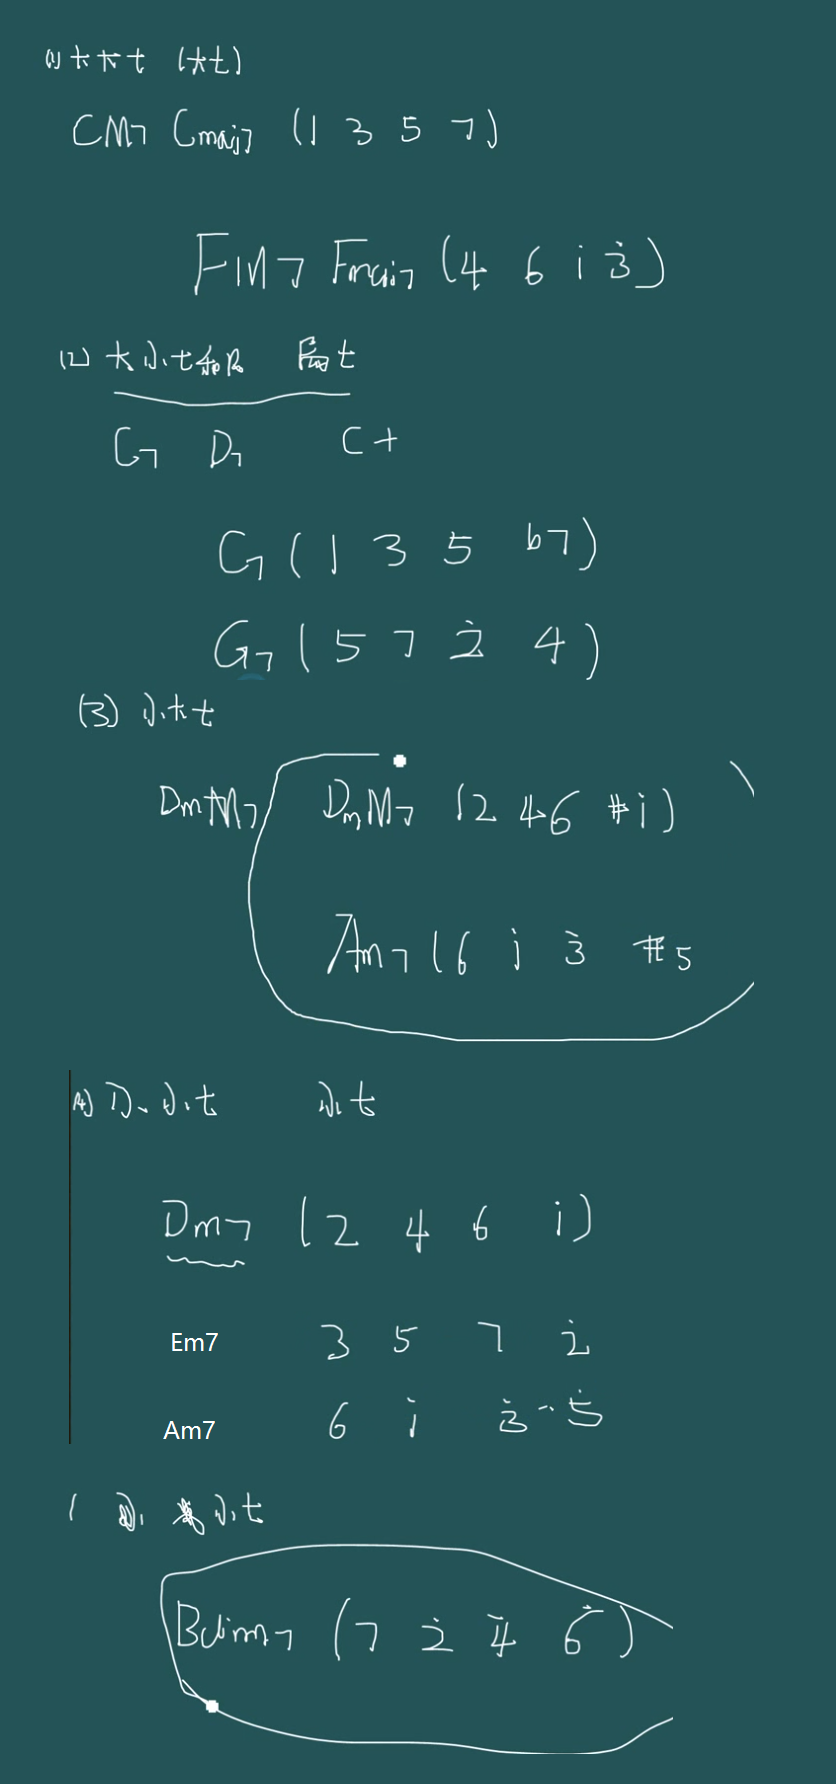 (1) 大大七 (大七)
CM7 Cmaj7 (1 3 5 7)
FM7 Fmaj7 (4 6 i 3̇)
(2) 大小七和弦 属七
G7 D7 C+
G7 (1 3 5 b7)
G7 (5 7 2̇ 4)
(3) 小大七
DmM7 DmM7 (2 4 6 #i)
Am7 (6 i 3̇ #5
(4) 小小七 小七
Dm7 (2 4 6 i)
Em7 3 5 7 2̇
Am7 6 i 3̇ 5̇
( 小七
Bdim7 (7 2̇ 4̇ 6̇)